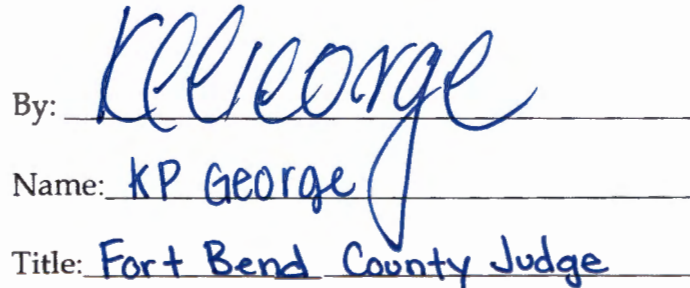 By: KP George
Name: KP George
Title: Fort Bend County Judge